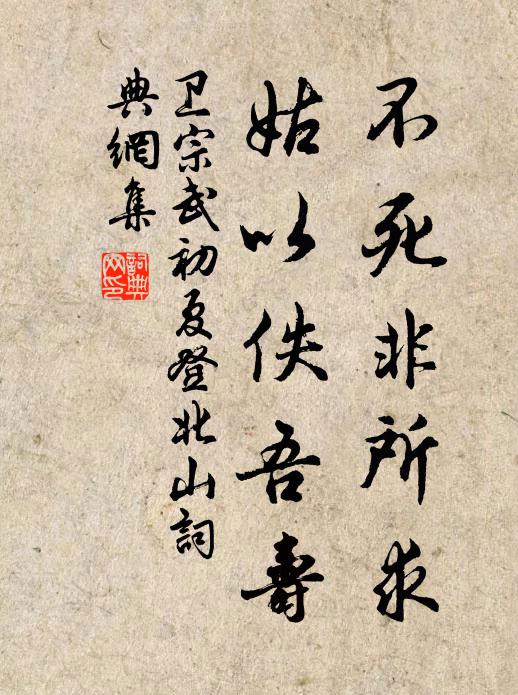 不死非所求
姑以佚吾壽
卫宗武初夏登北山詞
典網集
詞典
网印